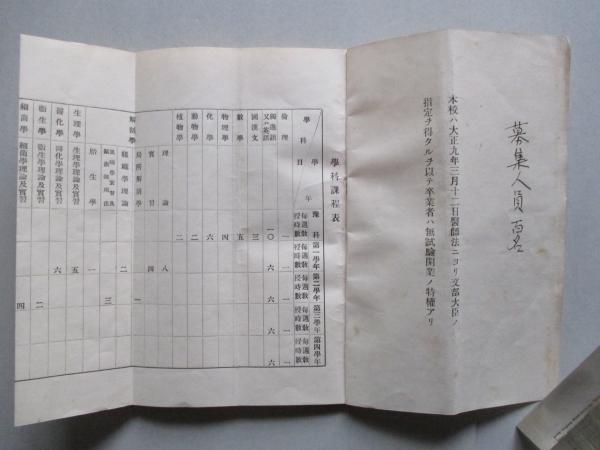 募集人員 百名
本校ハ大正九年三月十二日醫師法ニヨリ文部大臣ノ
指定ヲ得タルヲ以テ卒業者ハ無試驗開業ノ特權アリ
學科課程表
學科目 學年 豫科 第一學年 第二學年 第三學年 第四學年
每週教授時數 每週教授時數 每週教授時數 每週教授時數 每週教授時數
倫理 一 一 一 一 一
獨逸語又ハ英語 一〇 六 六 六 六
國漢文 三
數學 五
物理學 四
化學 六
動物學 二
植物學 二
解剖學
理論 八
實習 四
局所解剖學 一
組織學理論 二
胎生學 一
生理學 生理學理論及實習 五
醫化學 醫化學理論及實習 六
衞生學 衞生學理論及實習 二
細菌學 細菌學理論及實習 四